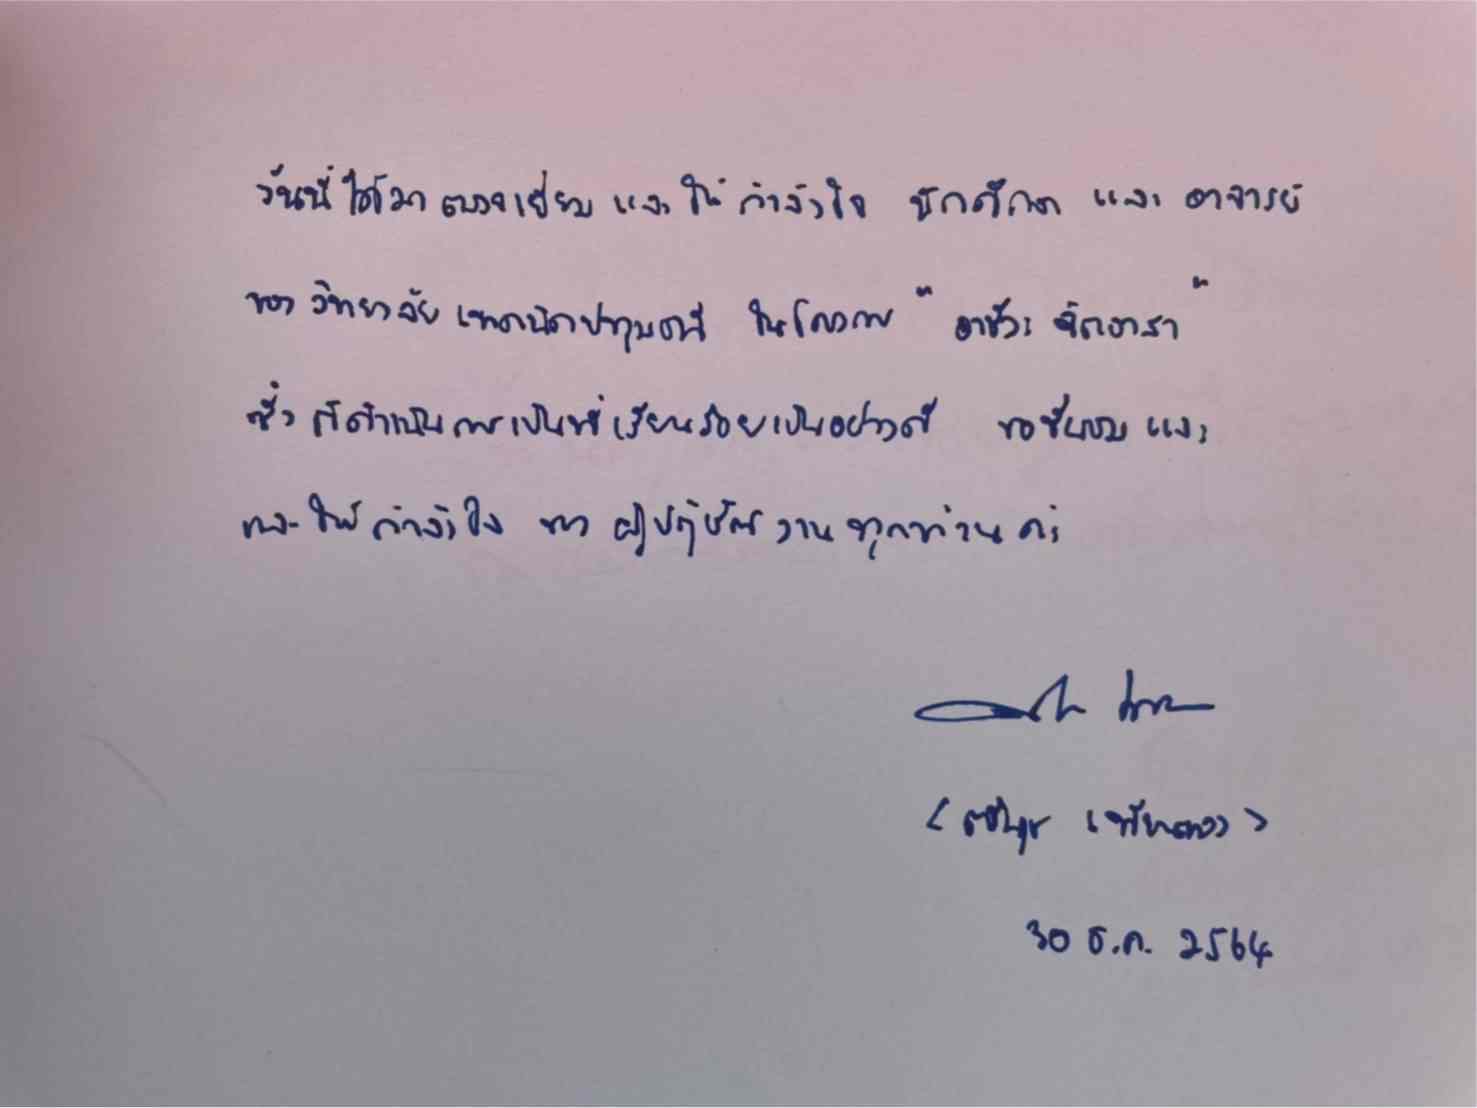 วันนี้ ได้มา ตรวจเยี่ยม และ ให้ กำลังใจ นักศึกษา และ อาจารย์
ของ วิทยาลัย เทคนิคปทุมธานี ในโครงการ " อาชีวะ จิตอาสา "
ซึ่ง ก็ดำเนินการเป็นที่เรียบร้อยเป็นอย่างดี ขอชื่นชม และ
และ ให้ กำลังใจ ผู้ปฏิบัติ งาน ทุกท่าน ค่ะ
( ตรีนุช เทียนทอง )
30 ธ.ค. 2564